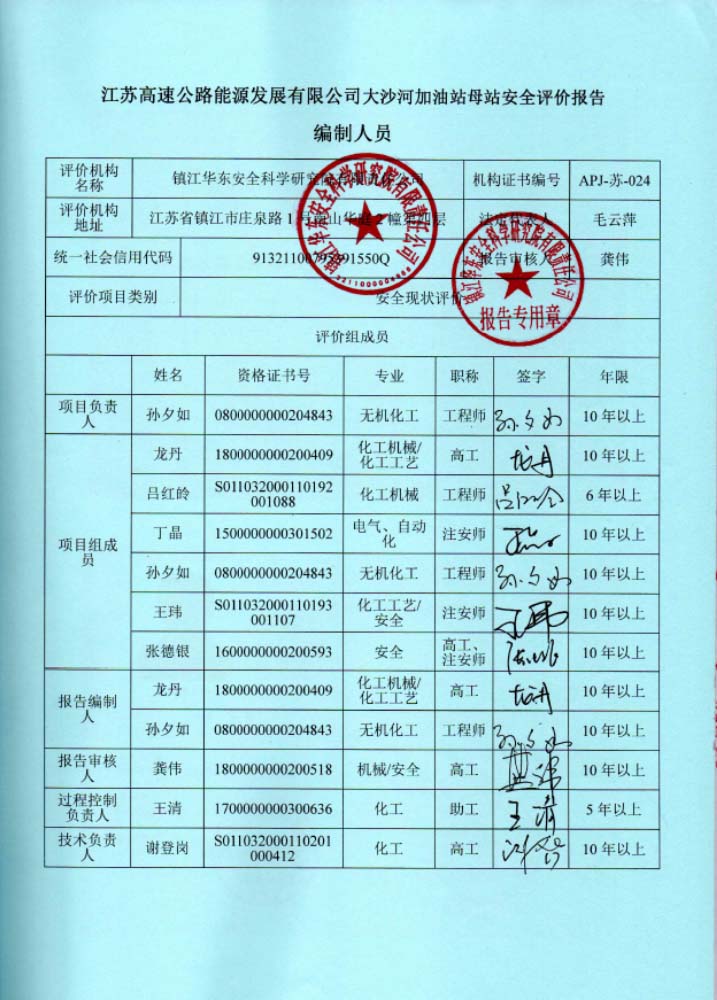 江苏高速公路能源发展有限公司大沙河加油站母站安全评价报告
编制人员
评价机构名称 镇江华东安全科学研究院有限责任公司 机构证书编号 APJ-苏-024
评价机构地址 江苏省镇江市庄泉路1号 山华庭2幢第四层 法定代表人 毛云萍
统一社会信用代码 报告审核人 龚伟
评价项目类别 安全现状评价
评价组成员
姓名 资格证书号 专业 职称 签字 年限
项目负责人 孙夕如 0800000000204843 无机化工 工程师 孙夕如 10年以上
项目组成员 龙丹 1800000000200409 化工机械/化工工艺 高工 龙丹 10年以上
吕红皊 S011032000110192001088 化工机械 工程师 6年以上
丁晶 1500000000301502 电气、自动化 注安师 10年以上
孙夕如 0800000000204843 无机化工 工程师 孙夕如 10年以上
王玮 S011032000110193001107 化工工艺/安全 注安师 王玮 10年以上
张德银 1600000000200593 安全 高工、注安师 10年以上
报告编制人 龙丹 1800000000200409 化工机械/化工工艺 高工 龙丹 10年以上
孙夕如 0800000000204843 无机化工 工程师 孙夕如 10年以上
报告审核人 龚伟 1800000000200518 机械/安全 高工 龚伟 10年以上
过程控制负责人 王清 1700000000300636 化工 助工 王清 5年以上
技术负责人 谢登岗 S011032000110201000412 化工 高工 10年以上
镇江华东安全科学研究院有限责任公司
镇江华东安全科学研究院有限责任公司
报告专用章